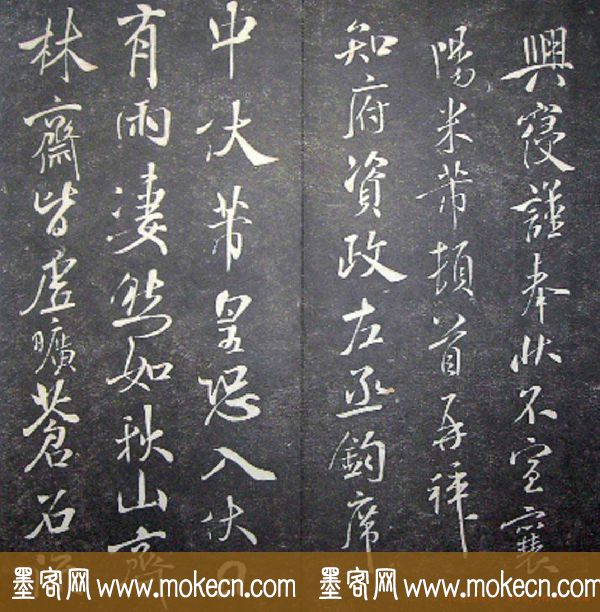 興寢謹奉狀不宣襄
陽米芾頓首再拜
知府資政左丞鈞席
中伏芾皇恐入伏
有雨淒然如秋山齋
林齋皆虛曠蒼石
墨客网 www.mokecn.com 墨客网 www.mokecn.com